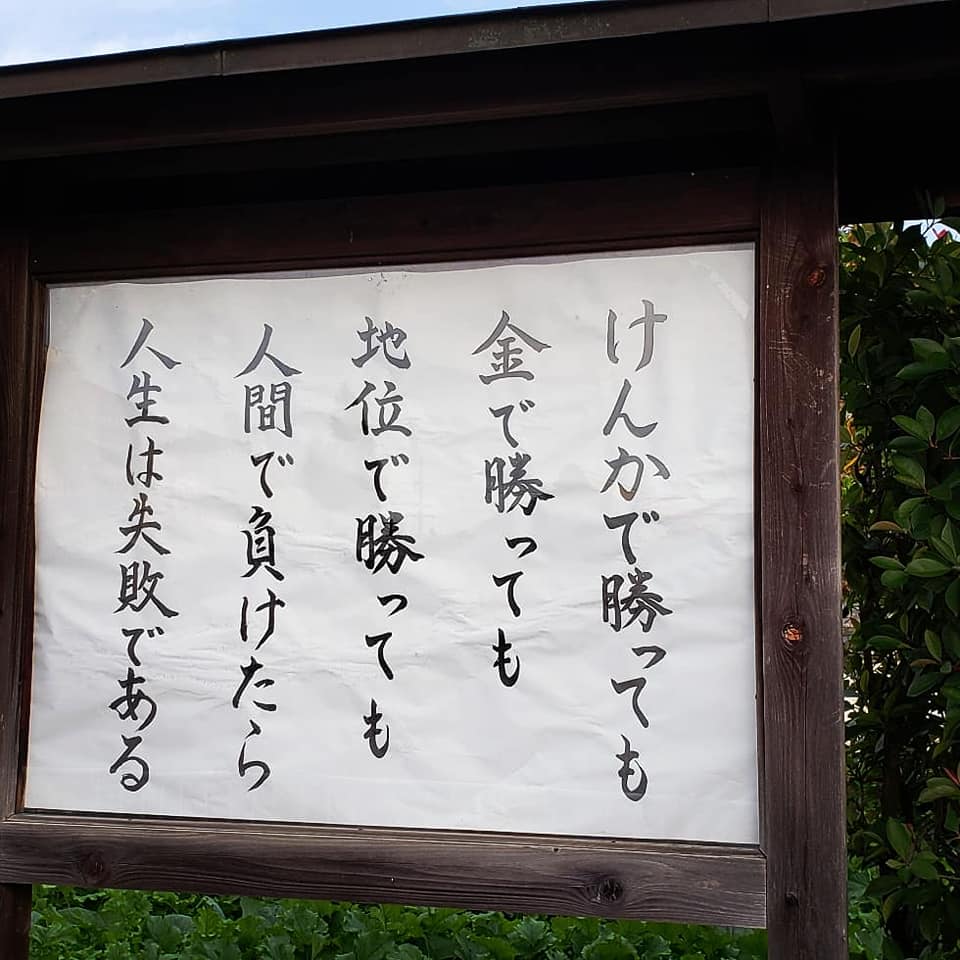 けんかで勝っても
金で勝っても
地位で勝っても
人間で負けたら
人生は失敗である